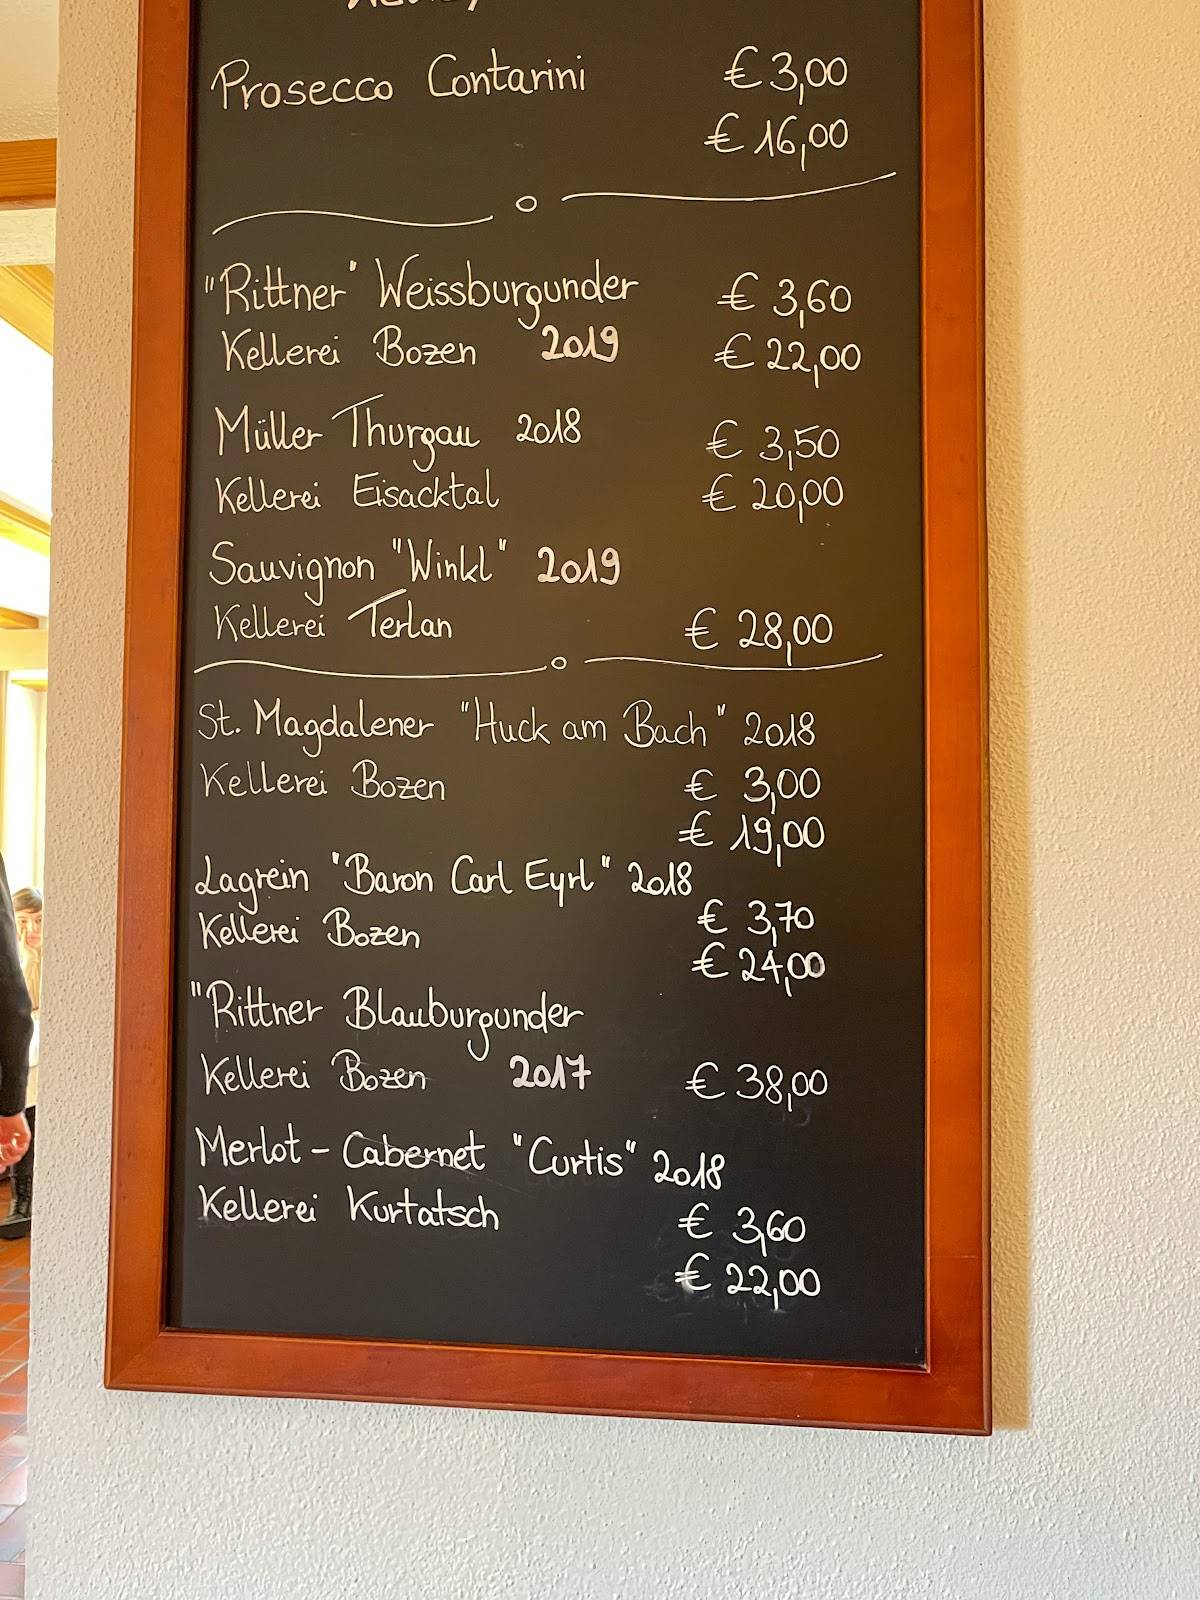 Prosecco Contarini € 3,00
€ 16,00
"Rittner" Weissburgunder € 3,60
Kellerei Bozen 2019 € 22,00
Müller Thurgau 2018 € 3,50
Kellerei Eisacktal € 20,00
Sauvignon "Winkl" 2019
Kellerei Terlan € 28,00
St. Magdalener "Huck am Bach" 2018
Kellerei Bozen € 3,00
€ 19,00
Lagrein "Baron Carl Eyrl" 2018
Kellerei Bozen € 3,70
€ 24,00
"Rittner Blauburgunder
Kellerei Bozen 2017 € 38,00
Merlot - Cabernet "Curtis" 2018
Kellerei Kurtatsch € 3,60
€ 22,00